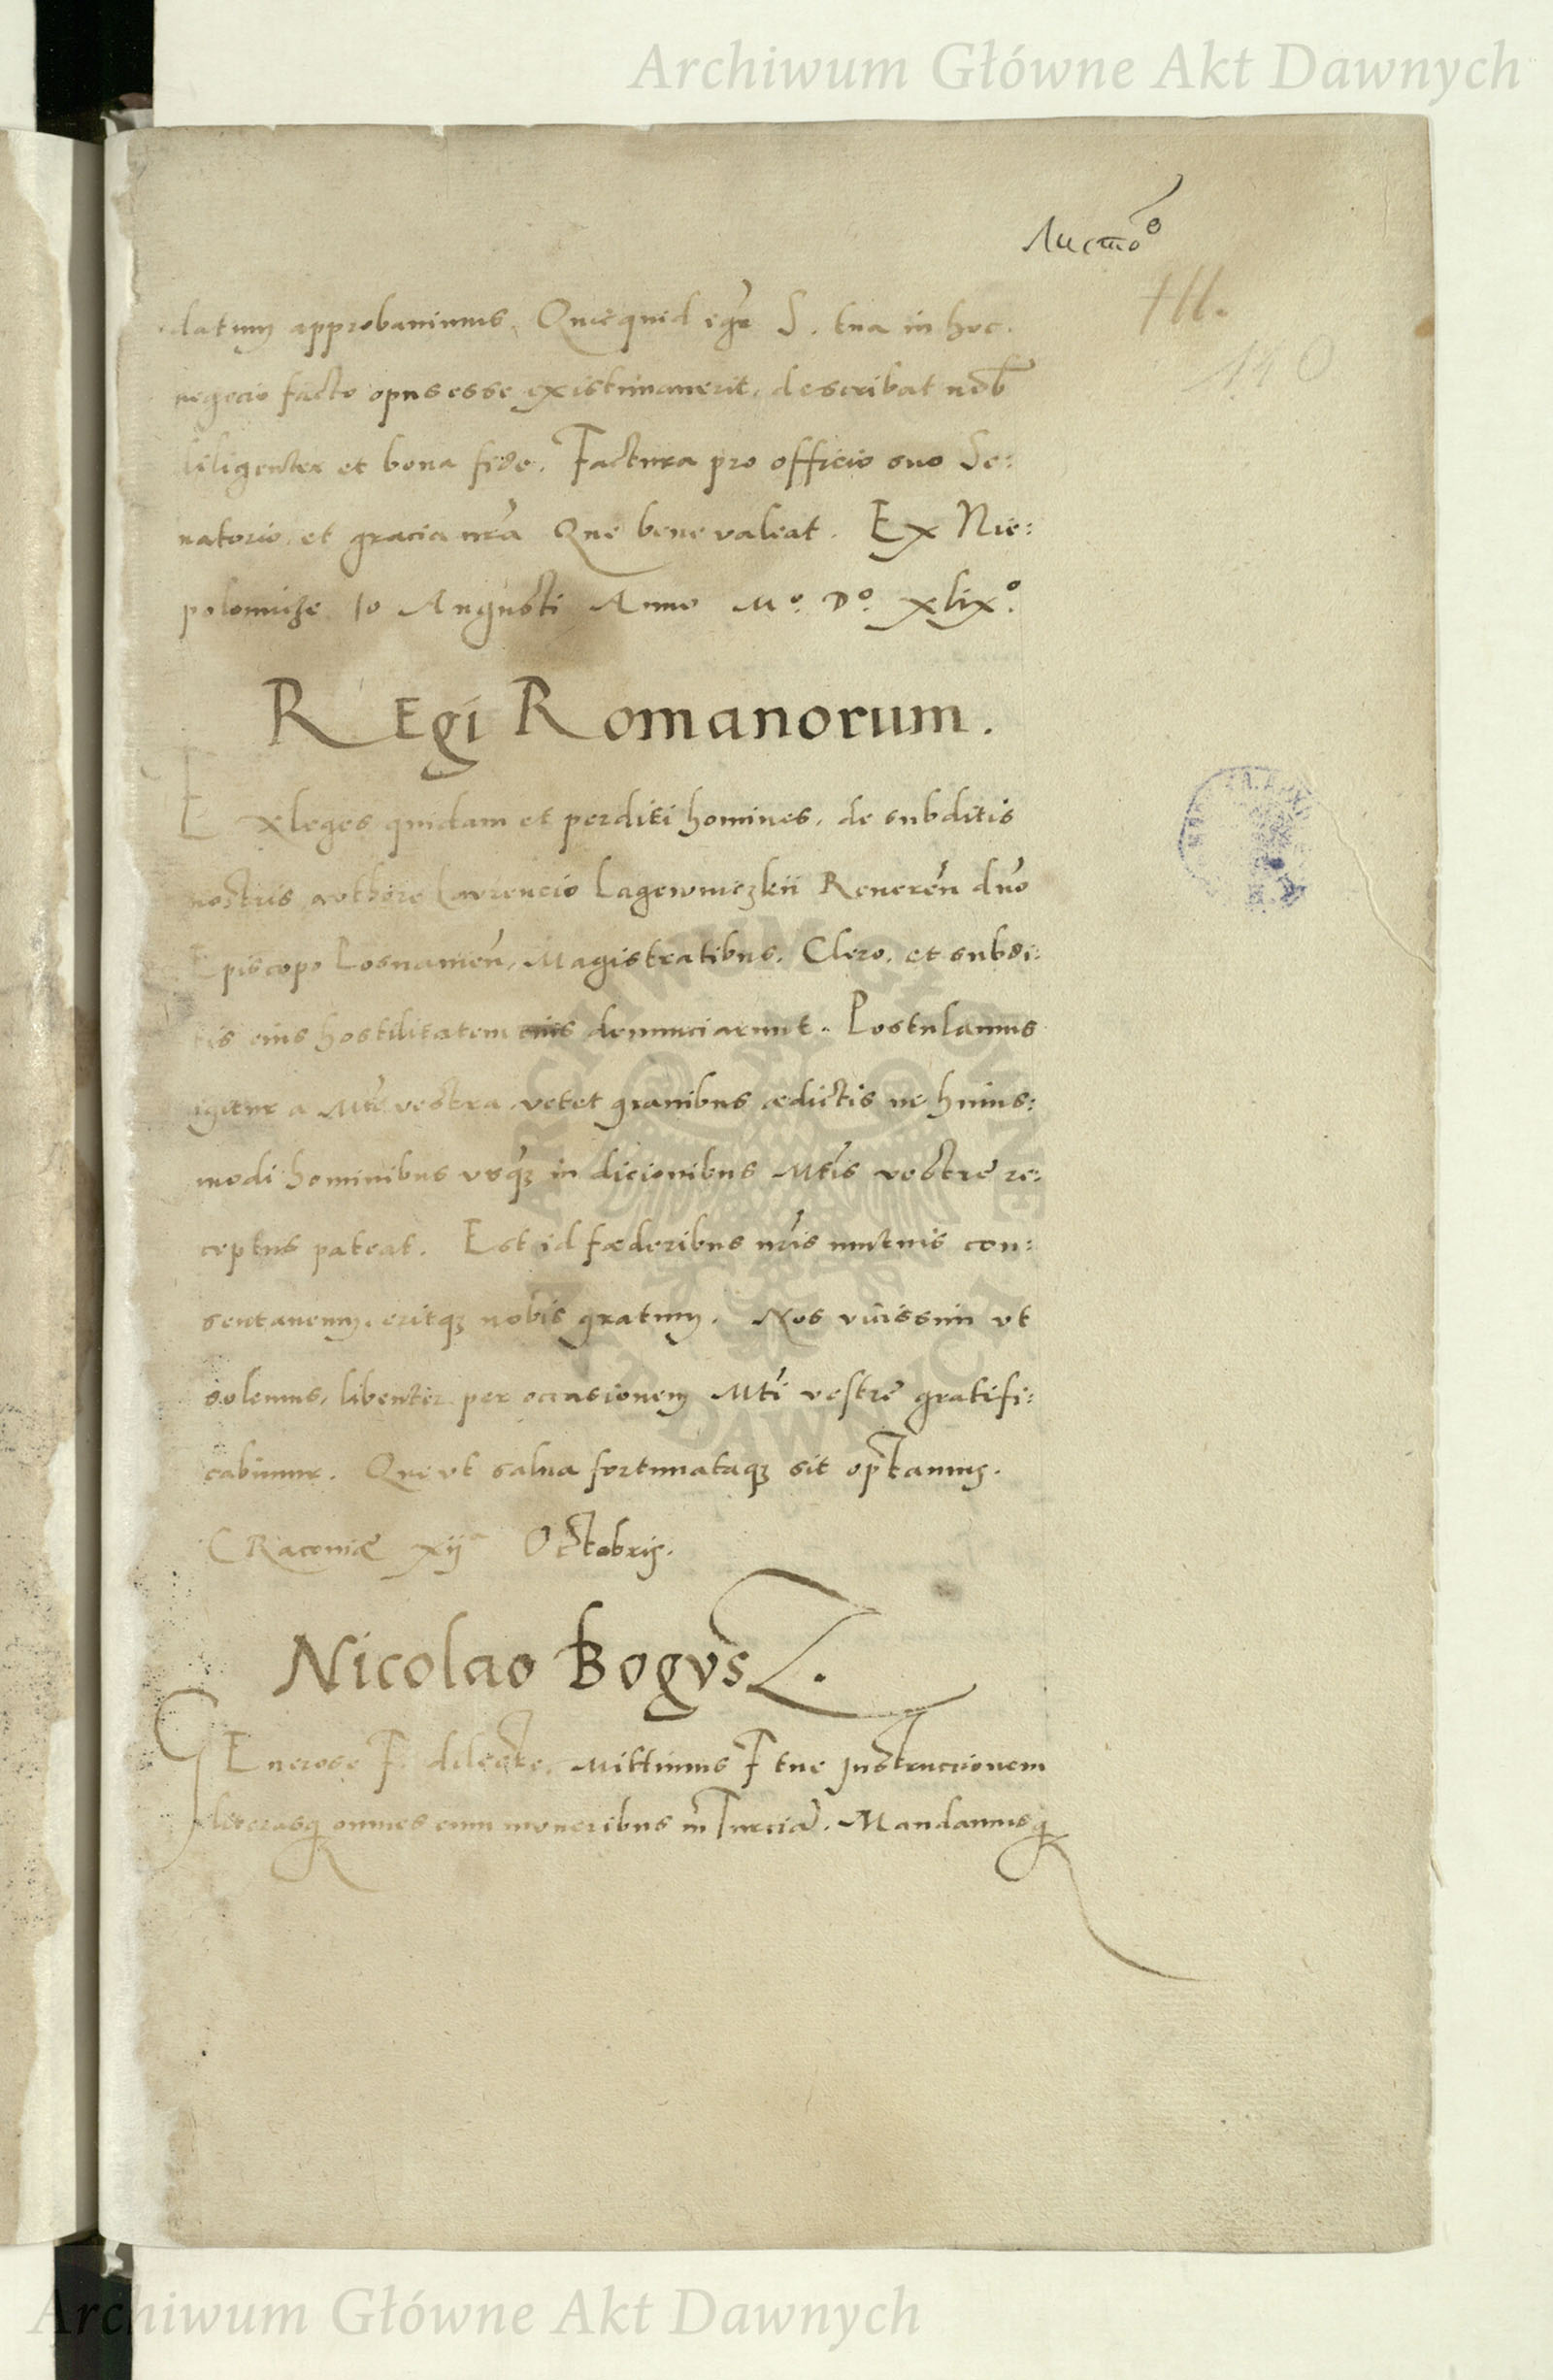 Archiwum Główne Akt Dawnych
Листо
datum approbauimus. Quicquid igr̃ S. tua in hoc
negocio facto opus esse existimauerit, describat nob̃
diligenter et bona fide. Factura pro officio suo Se:
natorio, et gracia nr̃a Que bene valeat. Ex Nie:
polomicze 10 Augusti Anno Mº. Dº. xlixº.
REgi Romanorum.
Exleges quidam et perditi homines, de subditis
nostris authore Laurencio Lagewniczkii Reueren̄ dn̄o
Episcopo Posnanien̄, Magistratibus, Clero, et subdi:
tis eius hostilitatem denunciarunt. Postulamus
igitur a Mt̃e vestra vetet grauibus ædictis ne huius:
modi hominibus vsq̃ in dicionibus Mt̃is vestrę re:
ceptus pateat. Est id fœderibus nr̃is mutuis con:
sentaneum, eritq̃ nobis gratum. Nos vicissim vt
solemus, libenter per occasionem Mt̃i vestrę gratifi:
cabimur. Que vt salua fortunataq̃ sit optamus.
CRacouiæ xijª Octobris.
Nicolao Bogusz.
GEnerose F. dilecte. Mittimus F tue Instruccionem
literasq̃ omnes cum muneribus in Turciã. Mandamusq̃
Archiwum Główne Akt Dawnych